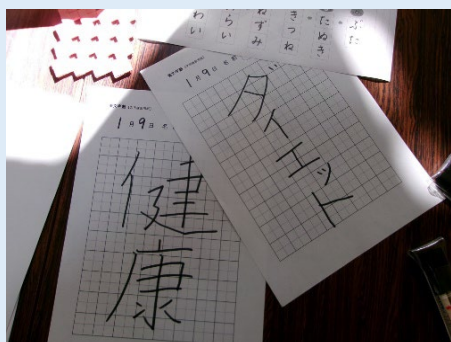 ぶた
たぬき
きつね
ねずみ
らい
わい
1月9日
ダイエット
1月9日
健康